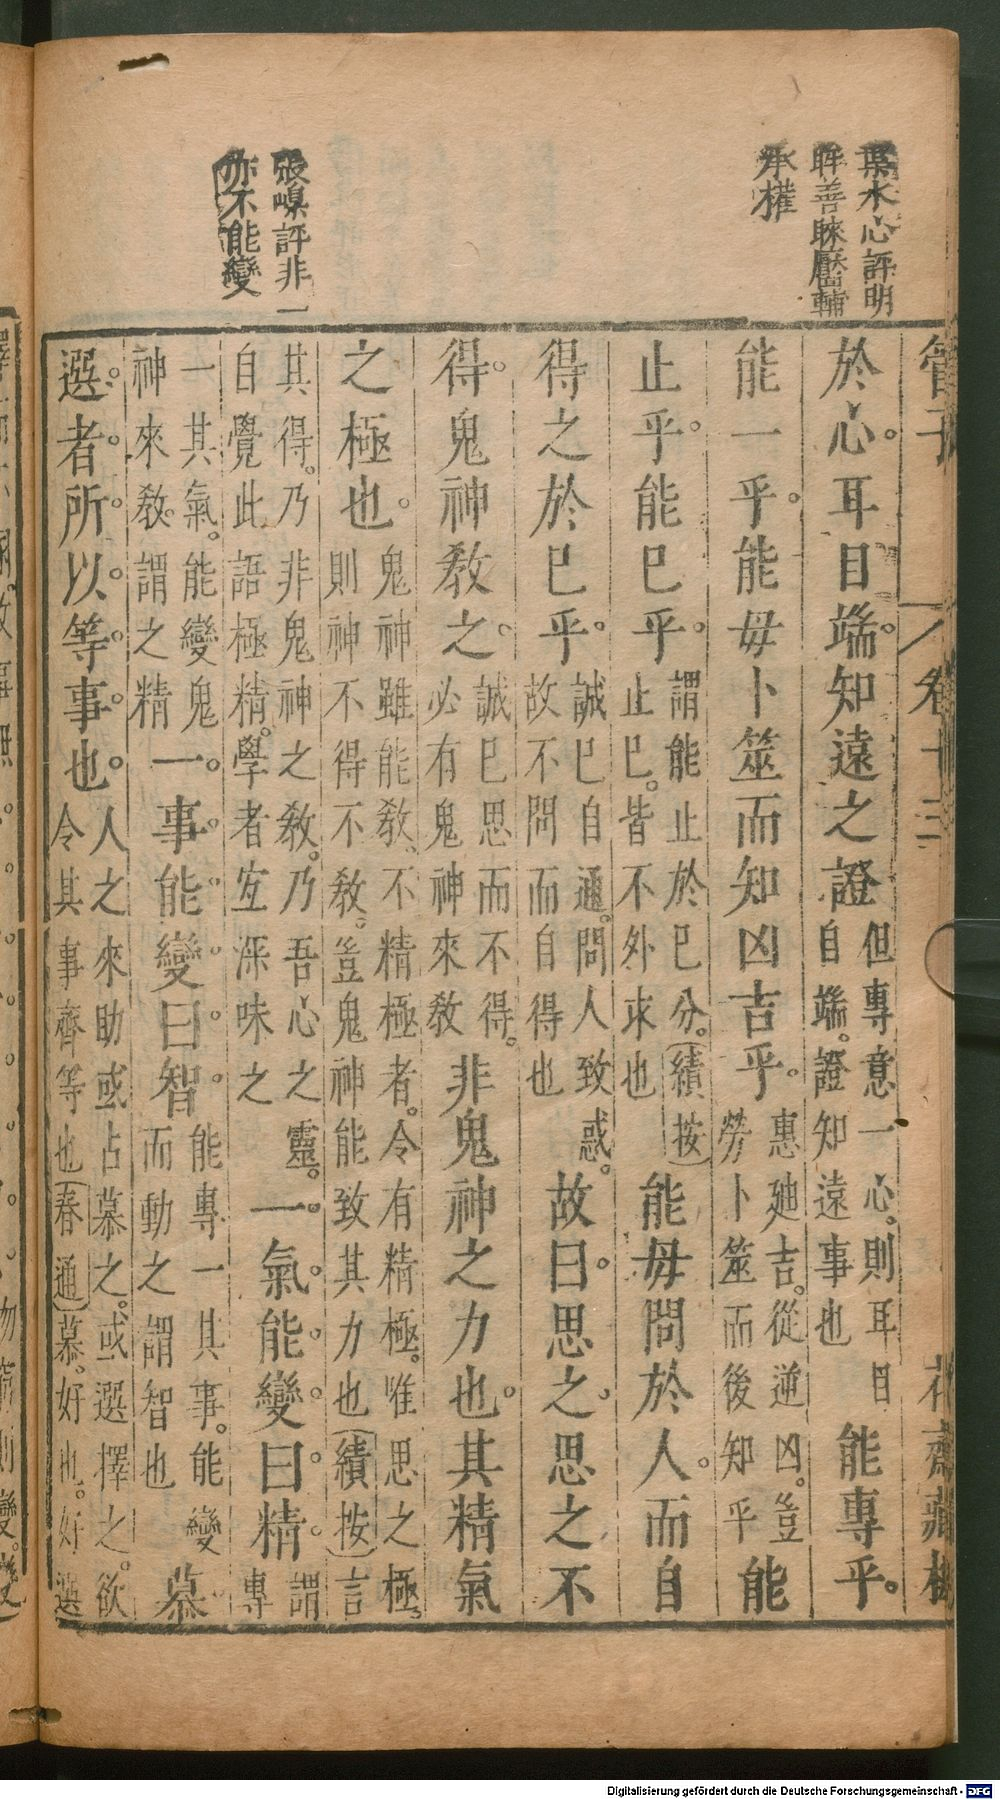 葉水心評明
眸善睐靨輔
承權
張嵲評非一
亦不能變
管子 卷十三 花齋藏板
於心耳目端知遠之證但專意一心則耳目
自端證知遠事也能專乎
能一乎能毋卜筮而知凶吉乎惠迪吉從逆凶豈
勞卜筮而後知乎能
止乎能已乎謂能止於已分續按
止已皆不外求也能毋問於人而自
得之於已乎誠已自通問人致惑
故不問而自得也故曰思之思之不
得鬼神教之誠已思而不得
必有鬼神來教非鬼神之力也其精氣
之極也鬼神雖能教不精極者令有精極唯思之極
則神不得不教豈鬼神能致其力也續按言
其得乃非鬼神之教乃吾心之靈
自覺此語極精學者宜深味之一氣能變曰精謂
專
一其氣能變鬼
神來教謂之精一事能變曰智能專一其事能變
而動之謂智也慕
選者所以等事也人之來助或占慕之或選擇之欲
令其事齊等也春通慕好也好選
Digitalisierung gefördert durch die Deutsche Forschungsgemeinschaft - DFG